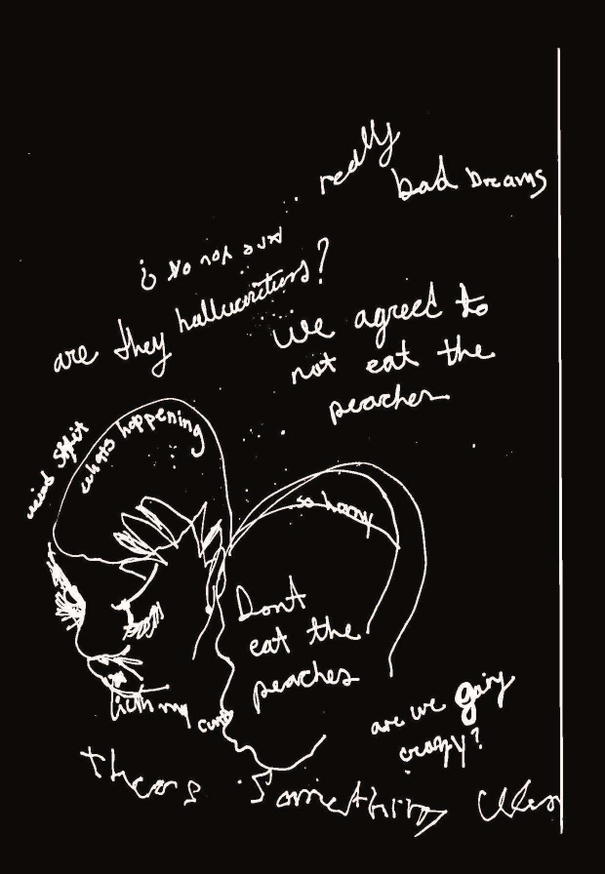 really
bad Dreams
are they hallucinations?
We agreed to
not eat the
peaches
weird shit
whats happening
so horny
Dont
eat the
peaches
lick my cunt
are we going
crazy?
theres something